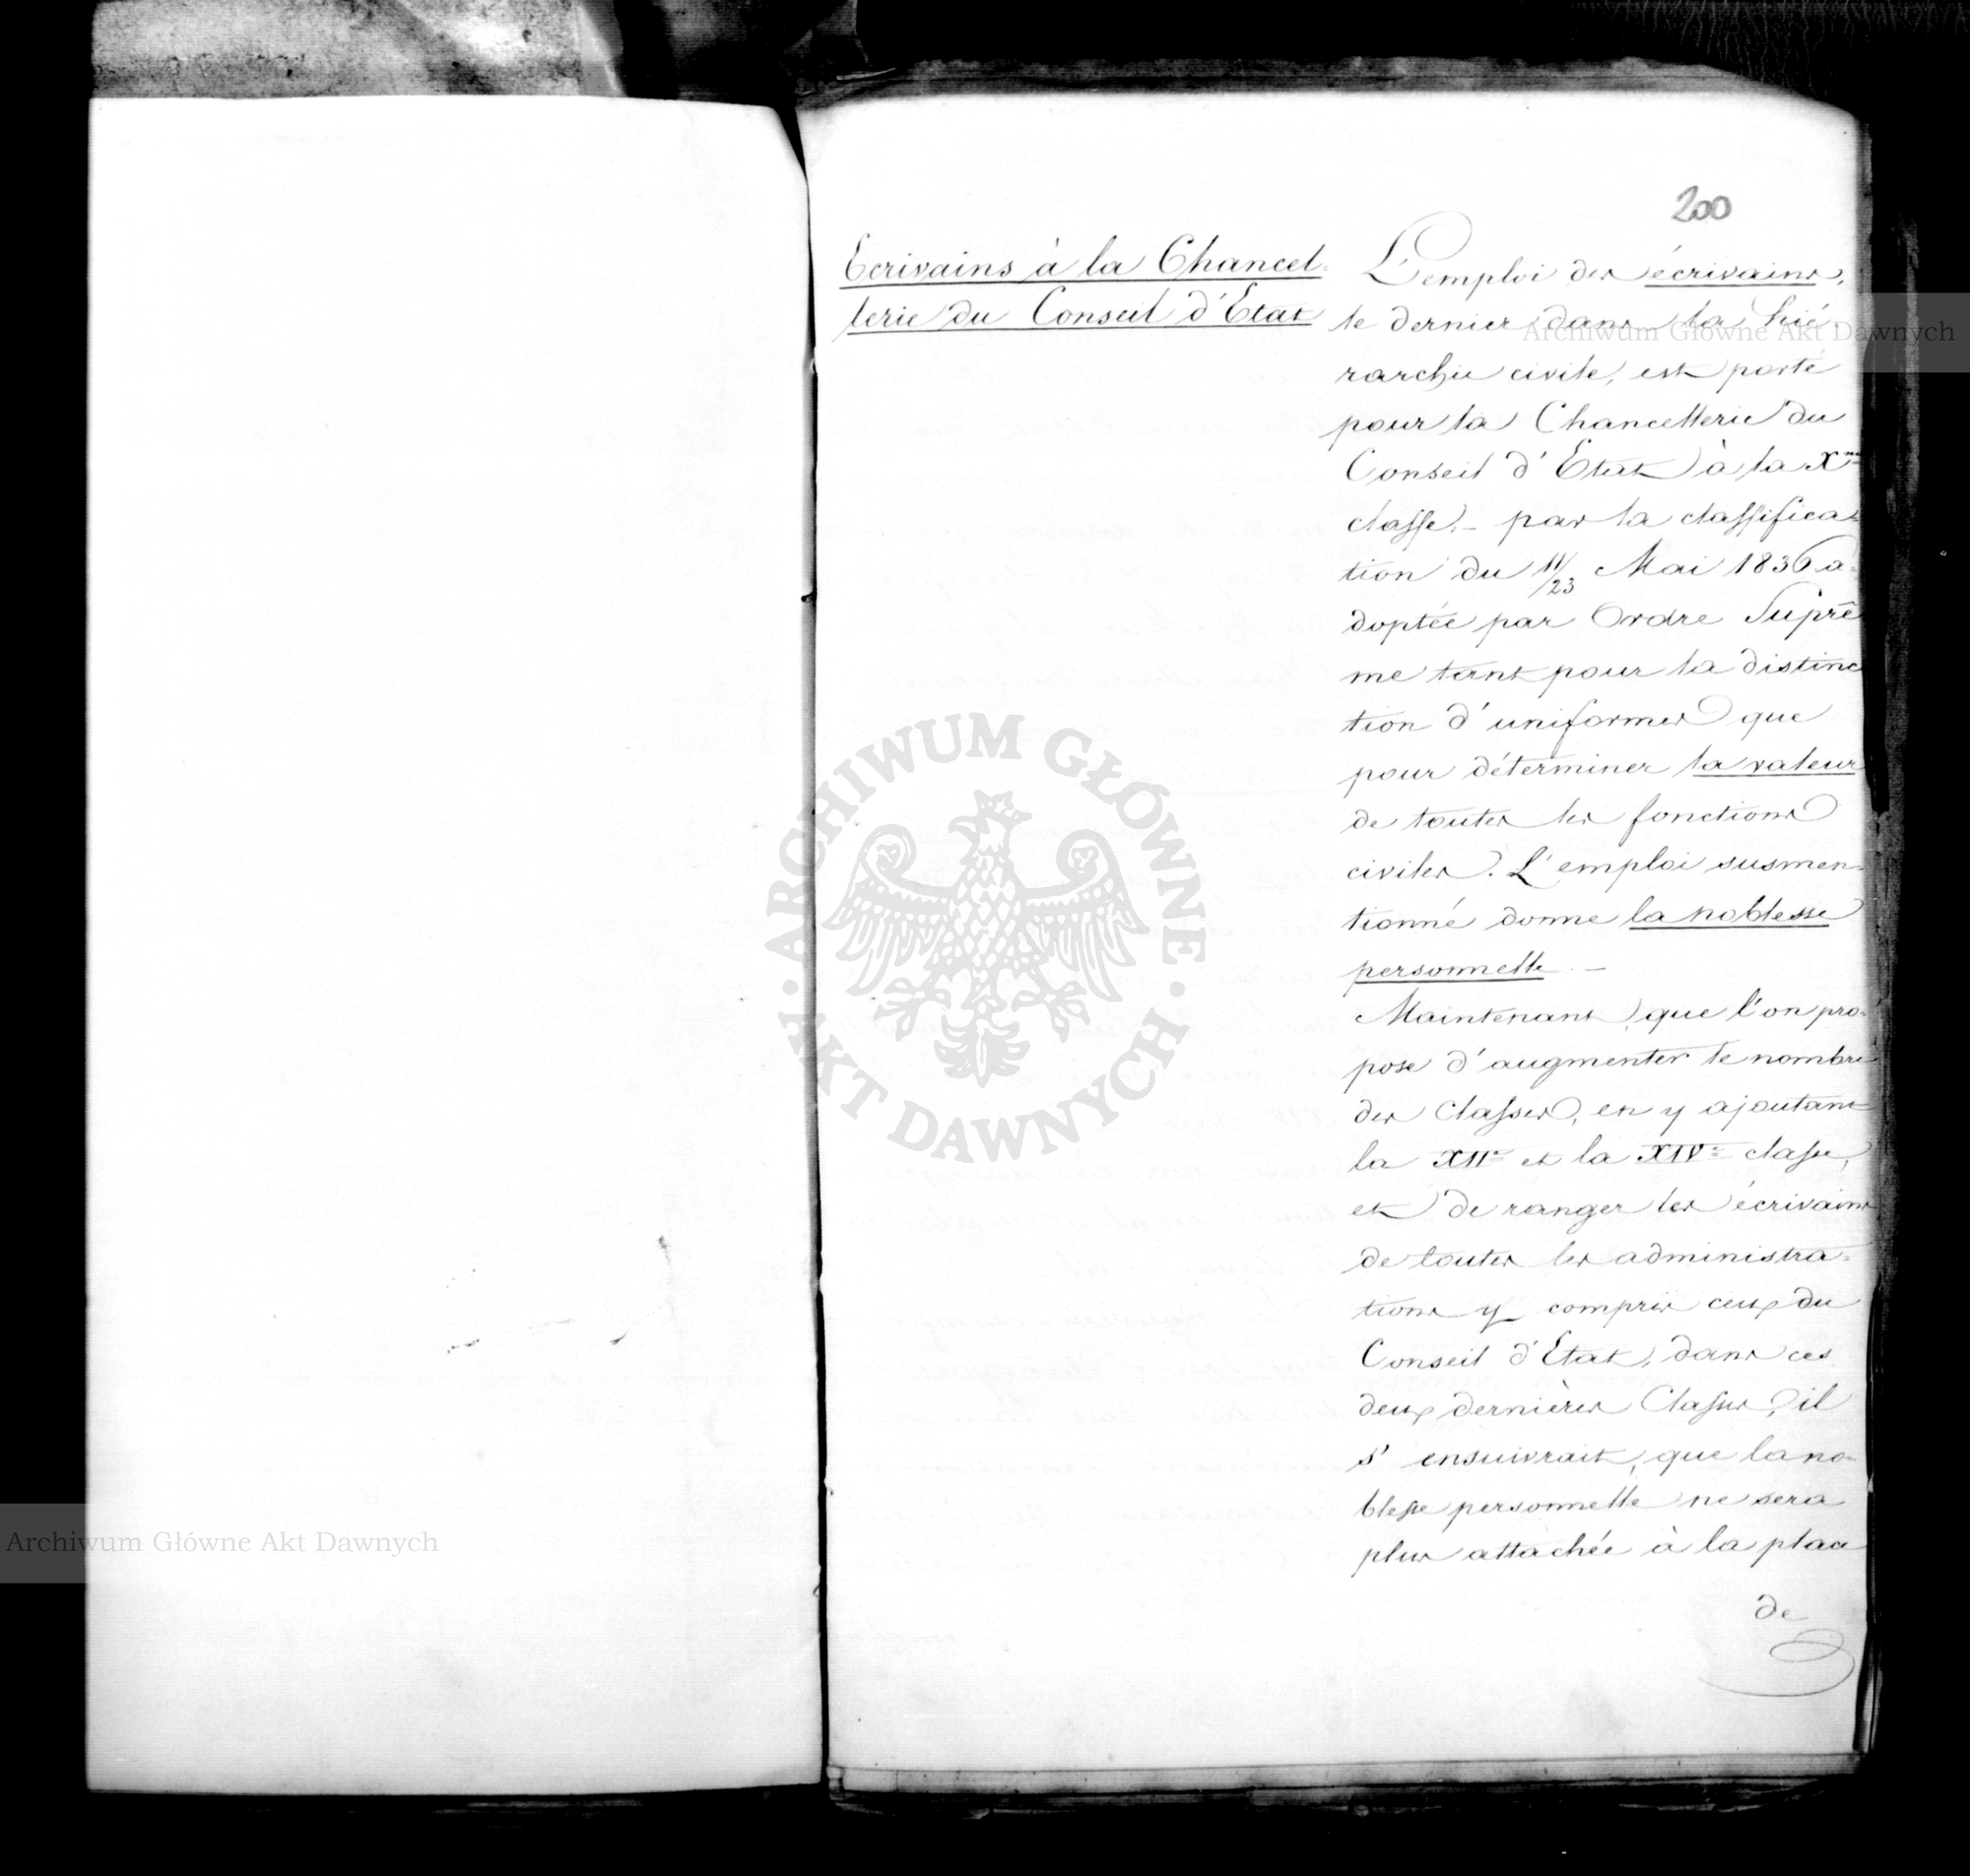 200
Ecrivains à la Chancel-
lerie du Conseil d'Etat
L'emploi des écrivains,
le dernier dans la hié-
rarchie civile, est porté
pour la Chancellerie du
Conseil d'Etat à la X.me
classe. – par la classifica-
tion du 11/23 Mai 1836 a-
doptée par Ordre Suprê
me tant pour la distinc
tion d'uniformes que
pour déterminer la valeur
de toutes les fonctions
civiles. L'emploi susmen-
tionné donne la noblesse
personnelle. –
Maintenant, que l'on pro-
pose d'augmenter le nombre
des Classes, en y ajoutant
la XII.e et la XIV.e classe,
et de ranger les écrivains
de toutes les administra-
tions y compris ceux du
Conseil d'Etat, dans ces
deux dernières Classes, il
s'ensuivrait, que la no-
blesse personnelle ne sera
plus attachée à la place
de
Archiwum Główne Akt Dawnych
ARCHIWUM GŁÓWNE
AKT DAWNYCH
Archiwum Główne Akt Dawnych